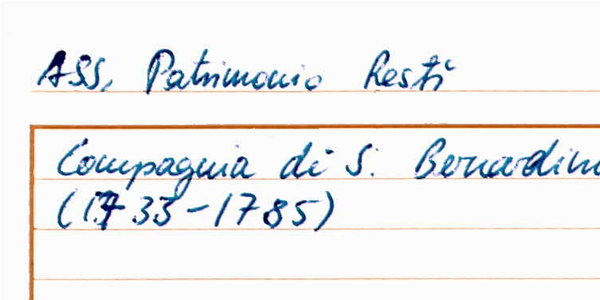 ASS, Patrimonio Resti
Compagnia di S. Bernardin
(1733-1785)